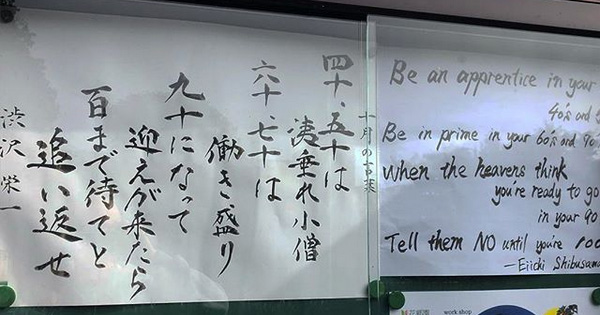 十月の言葉
四十、五十は
洟垂れ小僧
六十、七十は
働き盛り
九十になって
迎えが来たら
百まで待てと
追い返せ
渋沢栄一
Be an apprentice in your
40's and
Be in prime in your 60's and 70's
When the heavens think
you're ready to go
in your 90
Tell them NO until you're 100
—Eiichi Shibusawa
work shop